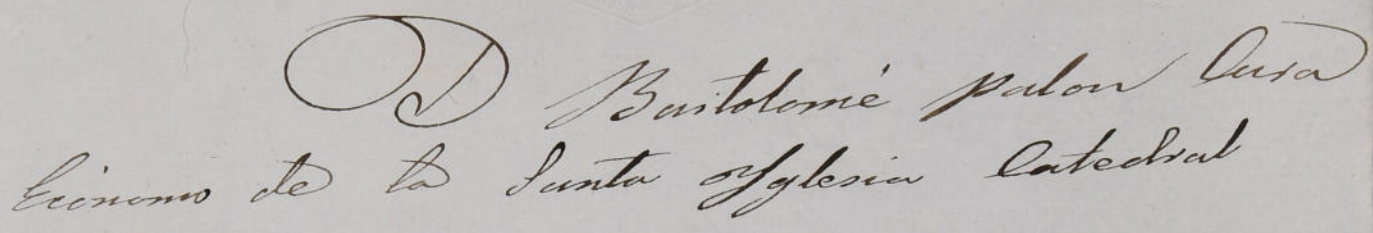 D Bartolomé palon Cura
Ecónomo de la Santa Yglesia Catedral